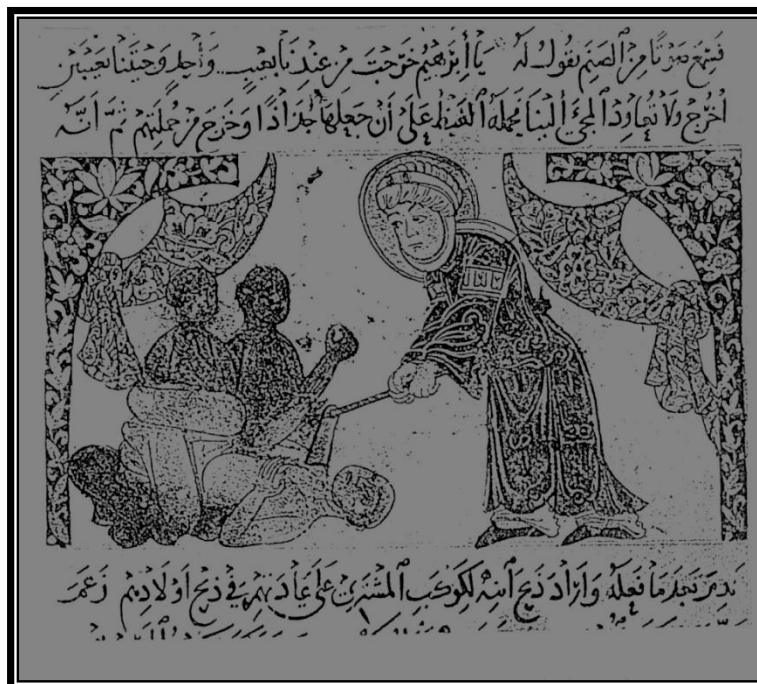 فسمع صوتًا مِن الصنم يقول له يا أبرهيم خرجتَ من عندنا بعيبٍ واحدٍ وجيتنا بعيبين
اخرج ولا تُعاود المجئ ألينا فحمله الغيظ على أن جعلها جُذاذًا وخرج من جملتهم ثم أنه
ندم بعد ما فعله واراد ذبح ابنه لكوكب المشتري على عادتهم في ذبح اولادهم زعم